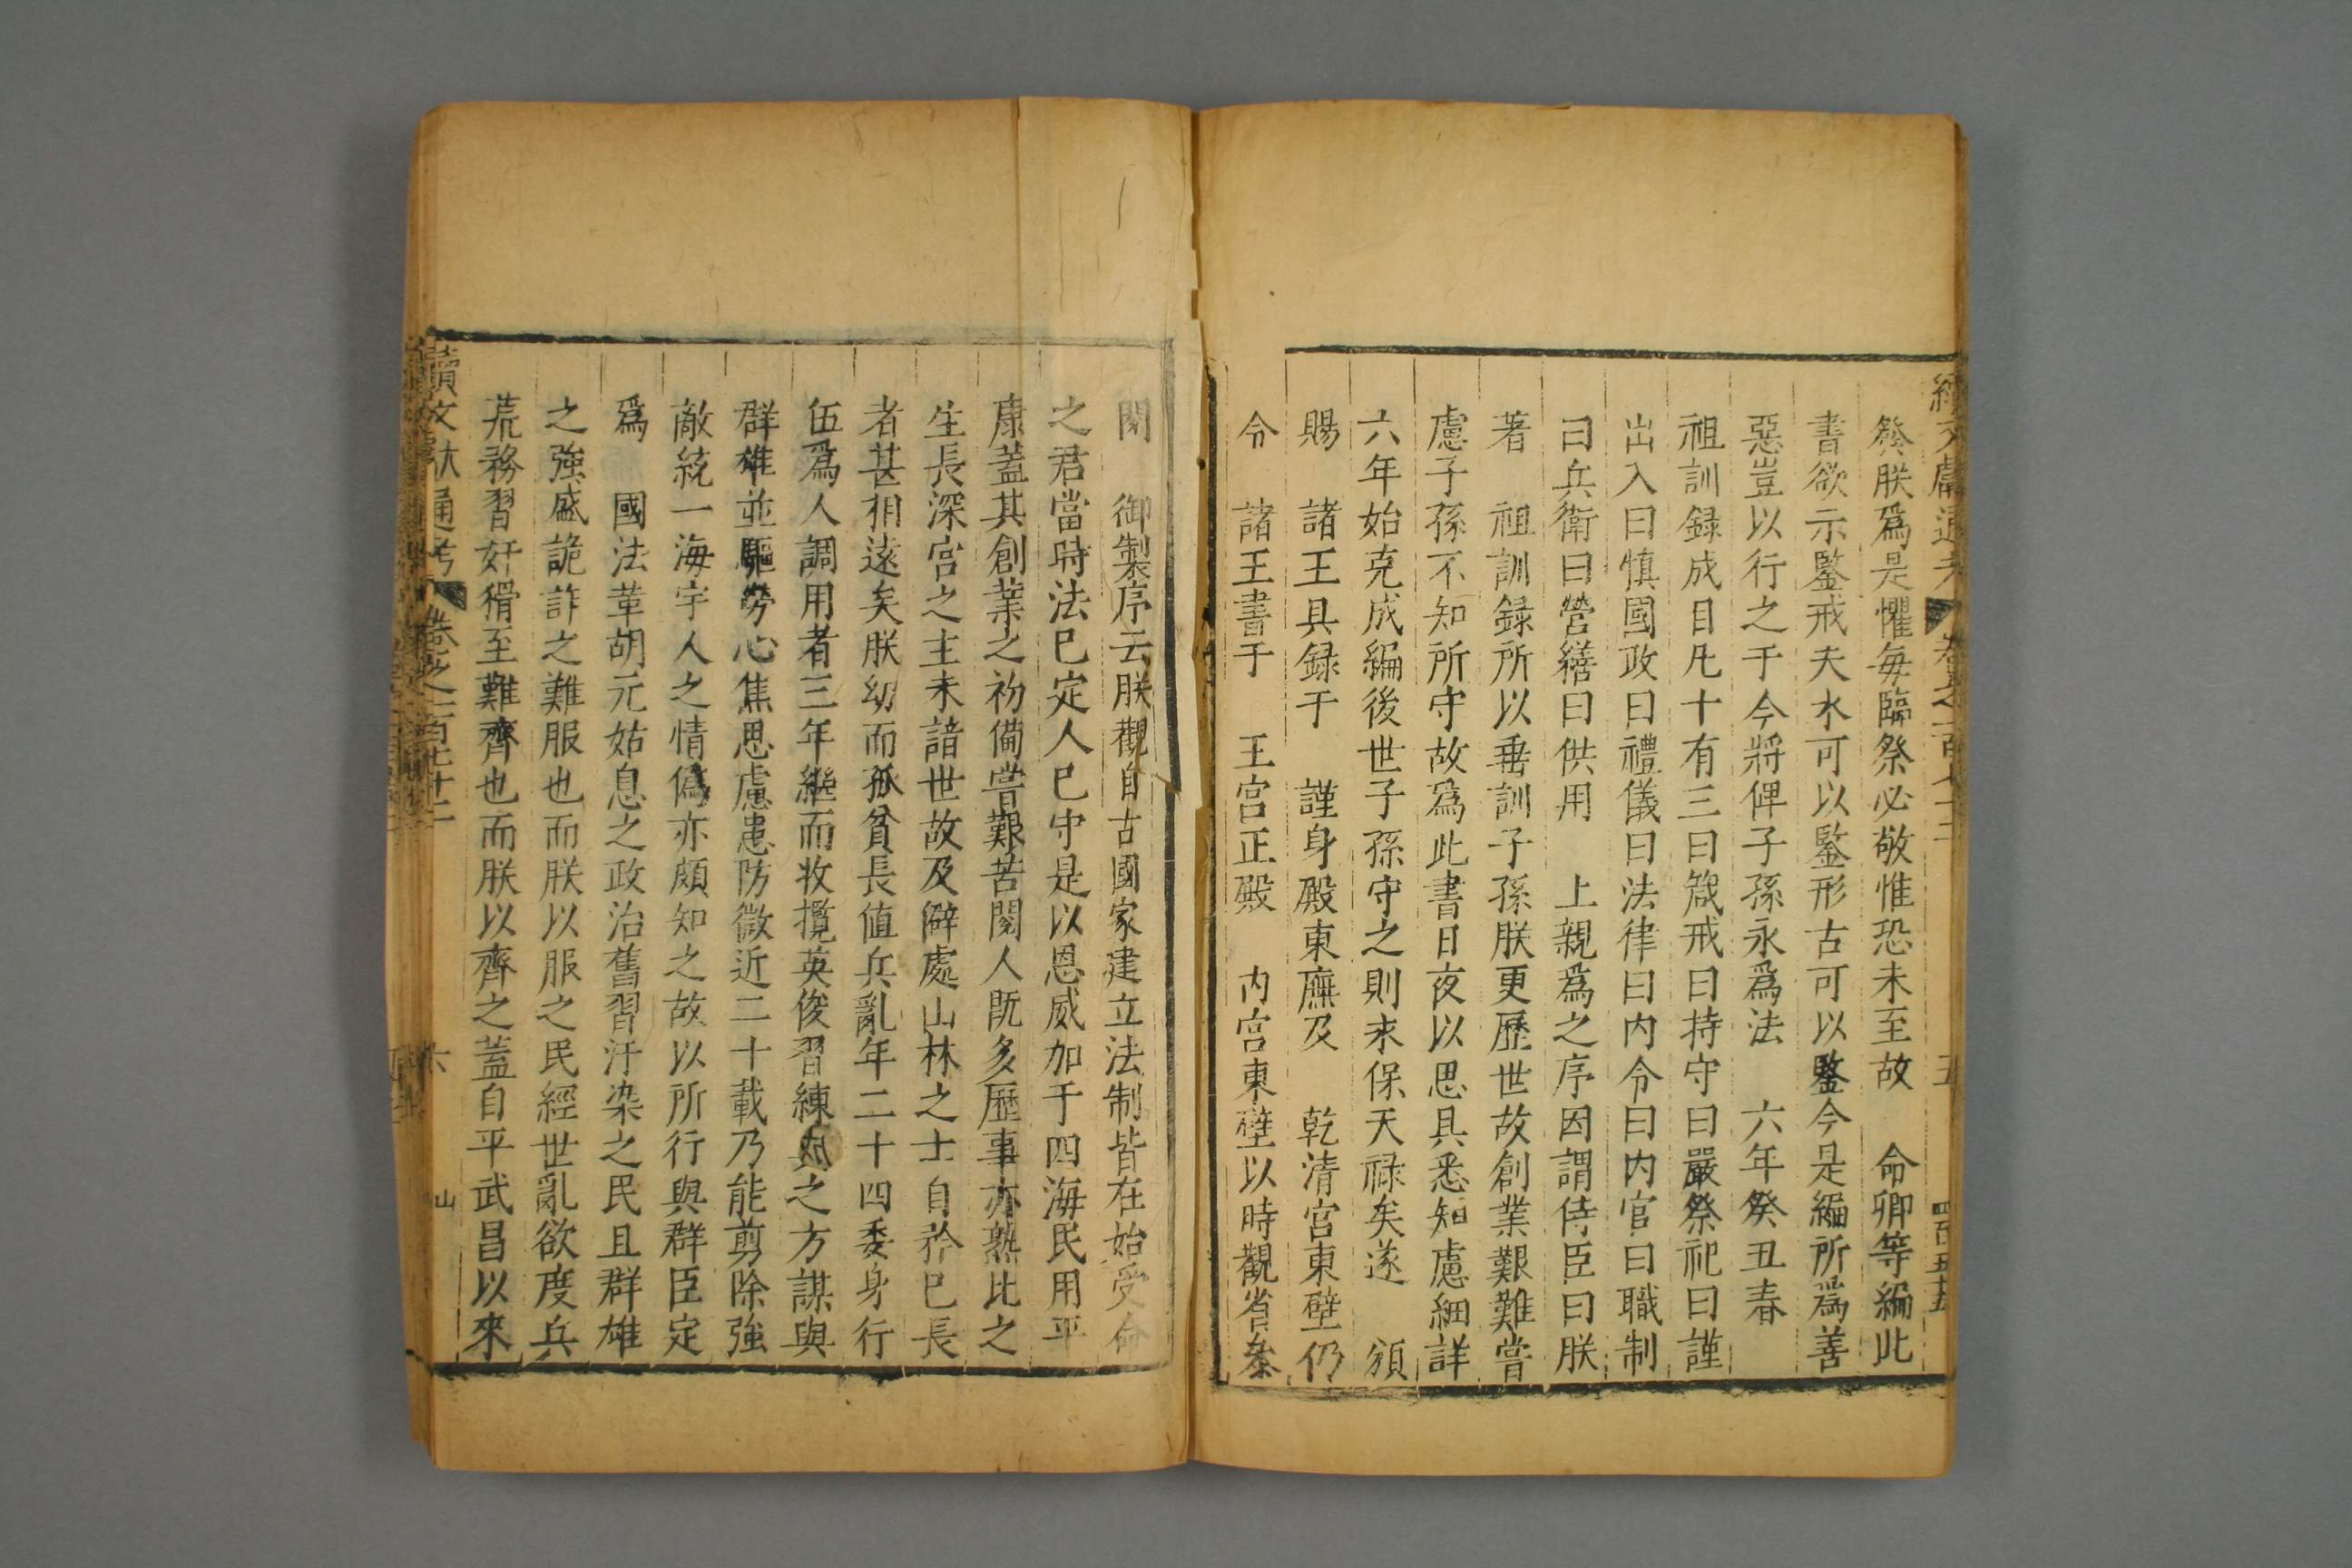 續文獻通考 卷之一百七十二 五 四百五十五
發朕爲是懼每臨祭必敬惟恐未至故 命卿等編此
書欲示鑒戒夫水可以鑒形古可以鑒今是編所爲善
惡豈以行之于今將俾子孫永爲法 六年癸丑春
祖訓録成目凡十有三曰箴戒曰持守曰嚴祭祀曰謹
出入曰慎國政曰禮儀曰法律曰内令曰内官曰職制
曰兵衛曰營繕曰供用 上親爲之序因謂侍臣曰朕
著 祖訓録所以垂訓子孫朕更歷世故創業艱難嘗
慮子孫不知所守故爲此書日夜以思具悉知慮細詳
六年始克成編後世子孫守之則永保天禄矣遂 頒
賜 諸王具録于 謹身殿東廡及 乾清宫東壁仍
令 諸王書于 王宫正殿 内宫東壁以時觀省叅
閱 御製序云朕觀自古國家建立法制皆在始受命
之君當時法已定人已守是以恩威加于四海民用平
康蓋其創業之初備嘗艱苦閱人既多歷事亦熟比之
生長深宫之主未諳世故及僻處山林之士自矜已長
者甚相遠矣朕幼而孤貧長值兵亂年二十四委身行
伍爲人調用者三年繼而收攬英俊習練兵之方謀與
群雄並驅勞心焦思慮患防微近二十載乃能剪除強
敵統一海宇人之情僞亦頗知之故以所行與群臣定
爲 國法革胡元姑息之政治舊習汙染之民且群雄
之強盛詭詐之難服也而朕以服之民經世亂欲度兵
荒務習奸猾至難齊也而朕以齊之蓋自平武昌以來
續文獻通考 卷之一百七十二 六 山